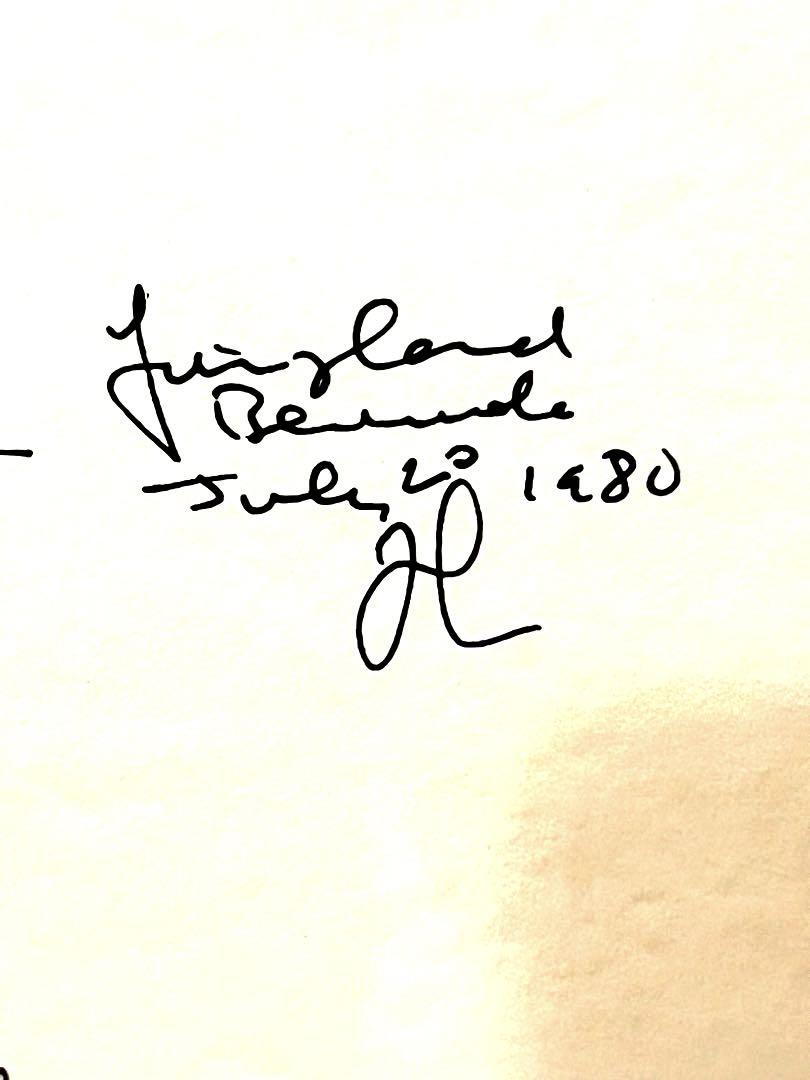 Fairyland
Bermuda
July 20 1980
JL